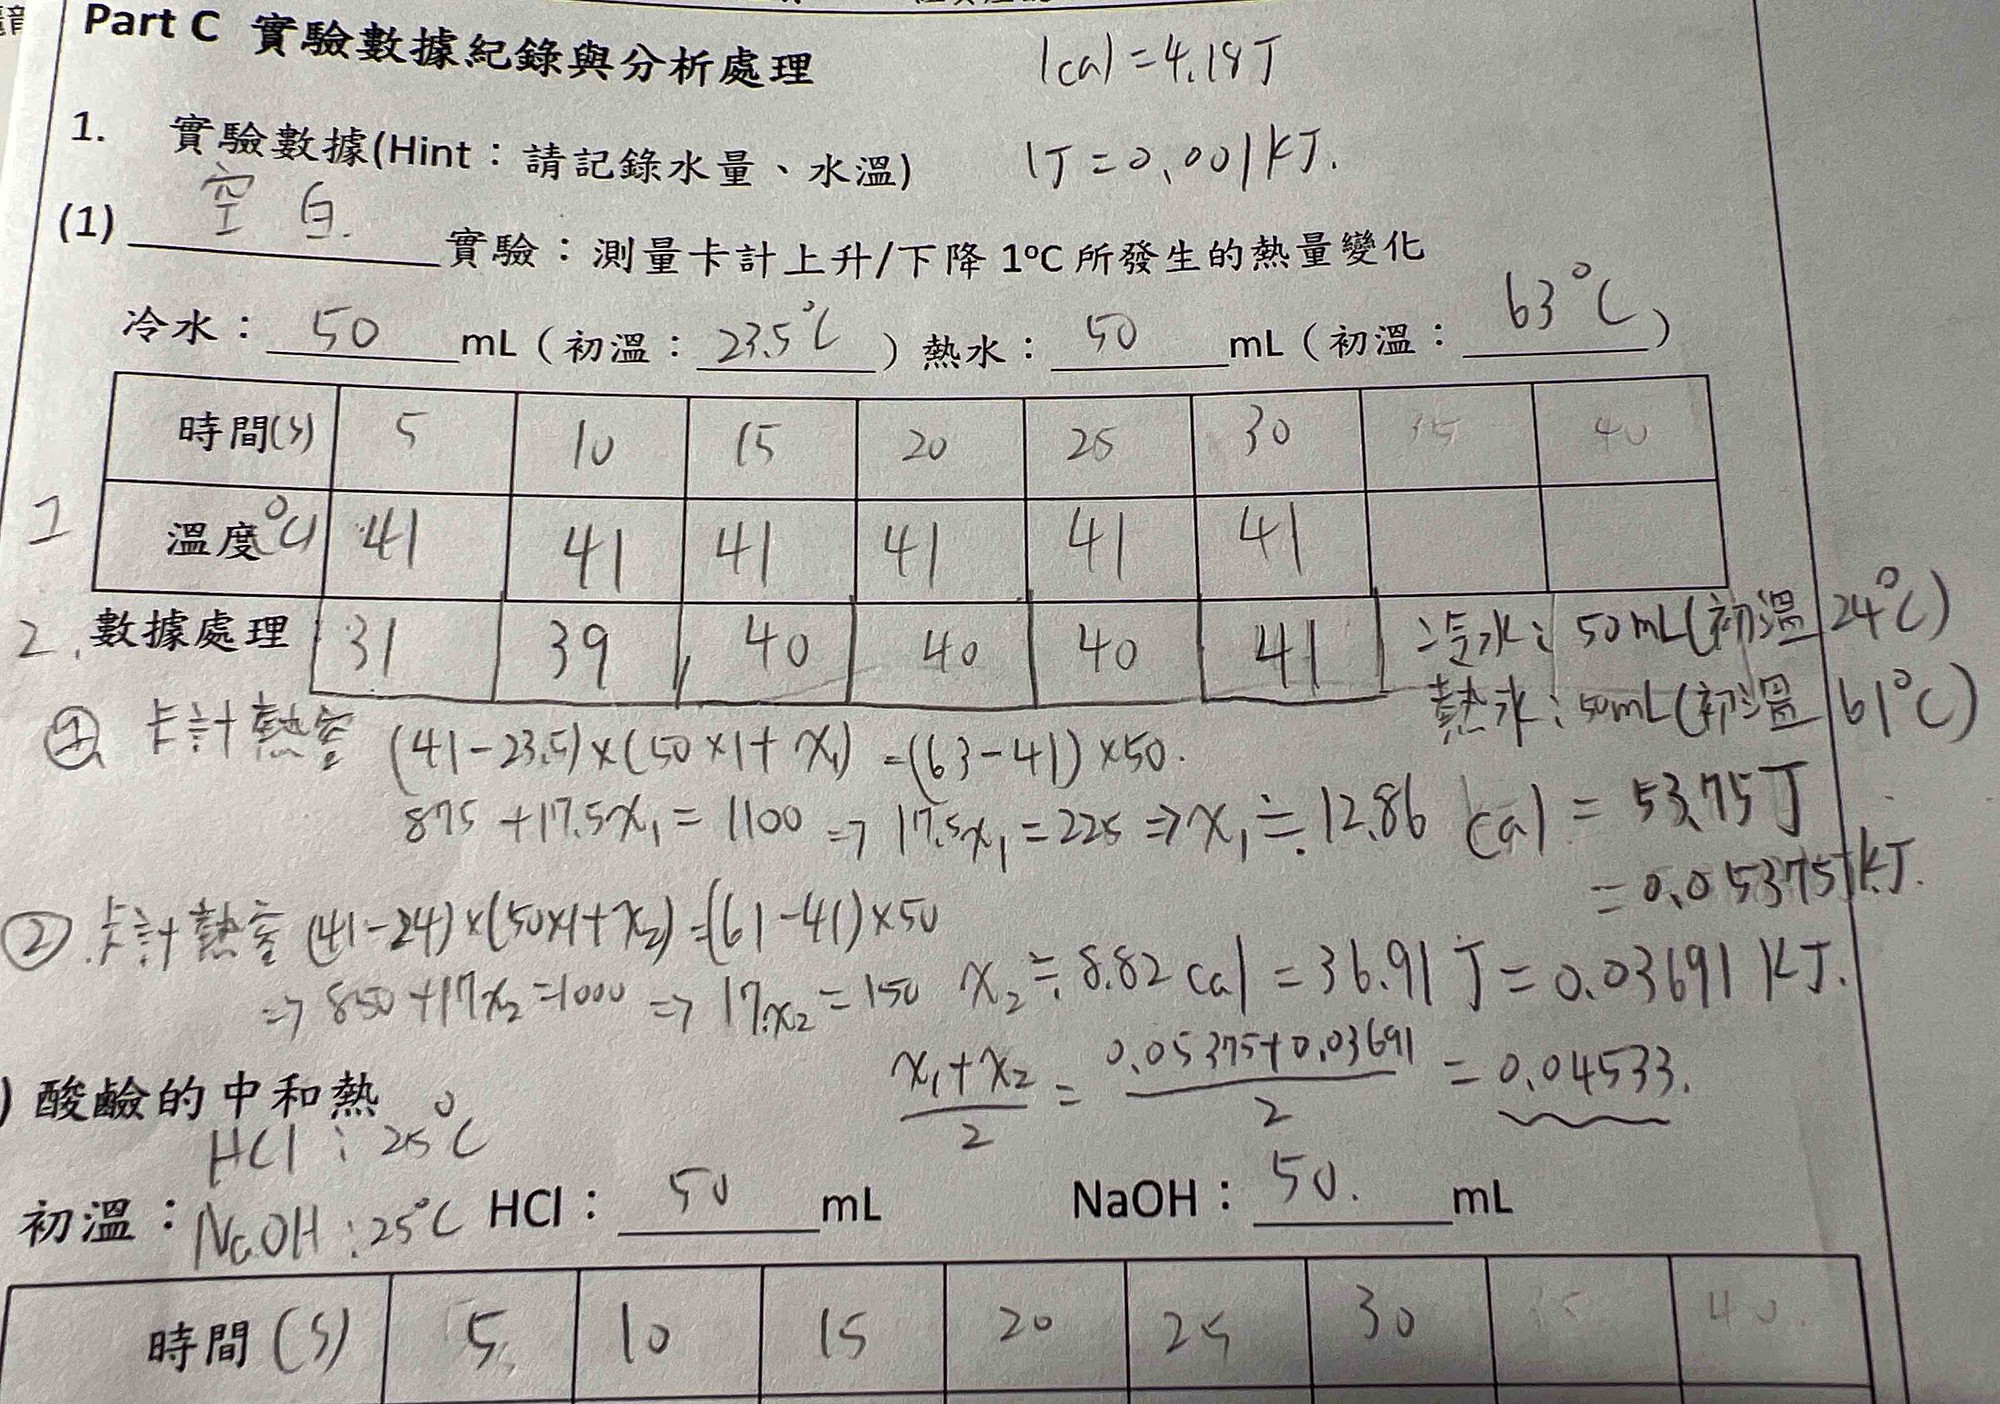 Part C 實驗數據紀錄與分析處理
1cal=4.18J
1. 實驗數據(Hint：請記錄水量、水溫)
1J=0.001kJ.
(1) 空白. 實驗：測量卡計上升/下降 1°C 所發生的熱量變化
冷水： 50 mL（初溫： 23.5°C ）熱水： 50 mL（初溫： 63°C ）
時間(s) 5 10 15 20 25 30 35 40
1 溫度°C 41 41 41 41 41 41
2. 數據處理 31 39 40 40 40 41 冷水：50mL(初溫24°C)
熱水：50mL(初溫61°C)
① 卡計熱容 (41-23.5)×(50×1+x₁)=(63-41)×50.
875+17.5x₁=1100⇒17.5x₁=225⇒x₁≒12.86 cal=53.75J
=0.05375kJ.
② 卡計熱容 (41-24)×(50×1+x₂)=(61-41)×50
⇒850+17x₂=1000⇒17x₂=150 x₂≒8.82cal=36.91J=0.03691kJ.
(x₁+x₂)/2=(0.05375+0.03691)/2=0.04533.
) 酸鹼的中和熱
HCl：25°C
初溫：NaOH：25°C HCl： 50 mL NaOH： 50. mL
時間(s) 5 10 15 20 25 30 35 40